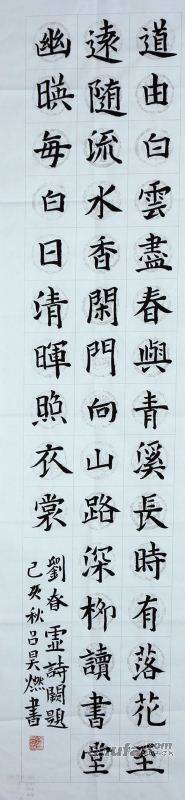 道由白雲盡春與青溪長時有落花至
遠随流水香閑門向山路深柳讀書堂
幽暎每白日清暉照衣裳
劉春詩闕題
己亥秋吕昊燃書